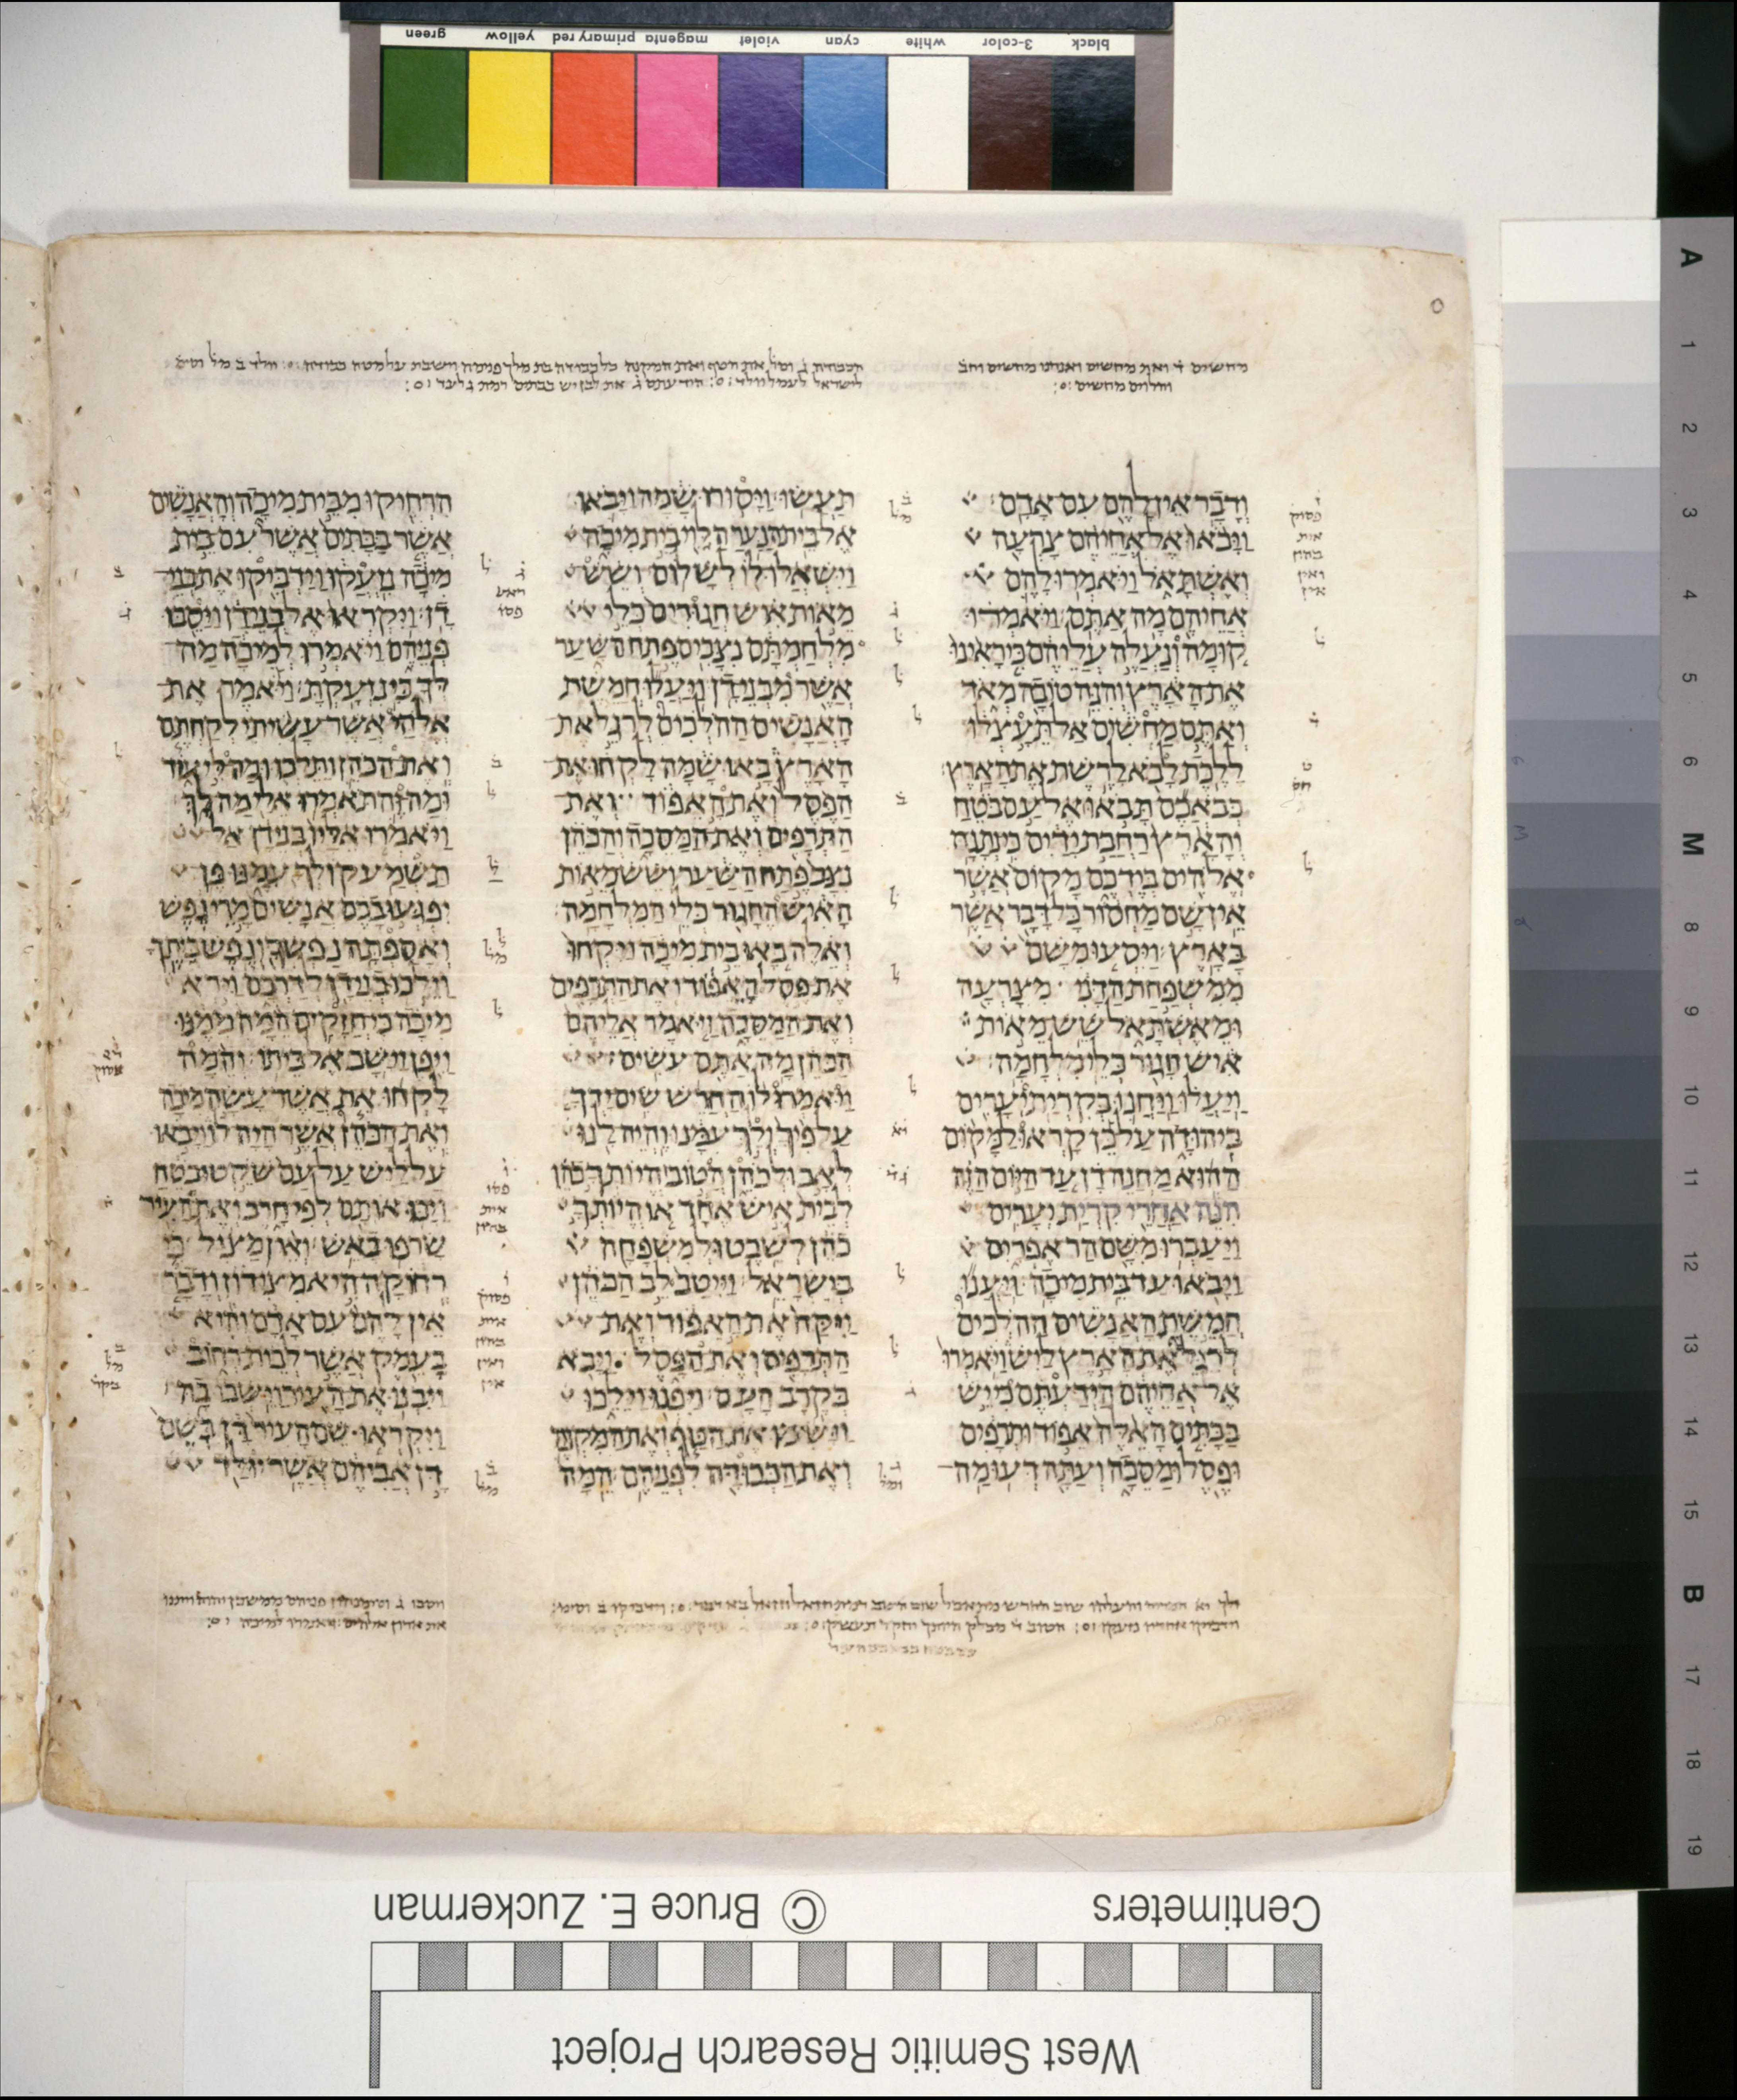 green yellow primary red magenta violet cyan white 3-color black
ודבר אין להם עם אדם׃
ויבאו אל אחיהם צרעה
ואשתאל ויאמרו להם
אחיהם מה אתם׃ ויאמרו
קומה ונעלה עליהם כי ראינו
את הארץ והנה טובה מאד
ואתם מחשים אל תעצלו
ללכת לבא לרשת את הארץ׃
כבאכם תבאו אל עם בטח
והארץ רחבת ידים כי נתנה
אלהים בידכם מקום אשר
אין שם מחסור כל דבר אשר
בארץ׃ ויסעו משם
ממשפחת הדני מצרעה
ומאשתאל שש מאות
איש חגור כלי מלחמה׃
ויעלו ויחנו בקרית יערים
ביהודה על כן קראו למקום
ההוא מחנה דן עד היום הזה
הנה אחרי קרית יערים׃
ויעברו משם הר אפרים
ויבאו עד בית מיכה׃ ויענו
חמשת האנשים ההלכים
לרגל את הארץ ליש ויאמרו
אל אחיהם הידעתם כי יש
בבתים האלה אפוד ותרפים
ופסל ומסכה ועתה דעו מה
תעשו׃ ויסורו שמה ויבאו
אל בית הנער הלוי בית מיכה
וישאלו לו לשלום׃ ושש
מאות איש חגורים כלי
מלחמתם נצבים פתח השער
אשר מבני דן׃ ויעלו חמשת
האנשים ההלכים לרגל את
הארץ באו שמה לקחו את
הפסל ואת האפוד ואת
התרפים ואת המסכה והכהן
נצב פתח השער ושש מאות
האיש החגור כלי המלחמה׃
ואלה באו בית מיכה ויקחו
את פסל האפוד ואת התרפים
ואת המסכה ויאמר אליהם
הכהן מה אתם עשים׃
ויאמרו לו החרש שים ידך
על פיך ולך עמנו והיה לנו
לאב ולכהן הטוב היותך כהן
לבית איש אחד או היותך
כהן לשבט ולמשפחה
בישראל׃ וייטב לב הכהן
ויקח את האפוד ואת
התרפים ואת הפסל ויבא
בקרב העם׃ ויפנו וילכו
וישימו את הטף ואת המקנה
ואת הכבודה לפניהם׃ המה
הרחיקו מבית מיכה והאנשים
אשר בבתים אשר עם בית
מיכה נזעקו וידביקו את בני
דן׃ ויקראו אל בני דן ויסבו
פניהם ויאמרו למיכה מה
לך כי נזעקת׃ ויאמר את
אלהי אשר עשיתי לקחתם
ואת הכהן ותלכו ומה לי עוד
ומה זה תאמרו אלי מה לך׃
ויאמרו אליו בני דן אל
תשמע קולך עמנו פן
יפגעו בכם אנשים מרי נפש
ואספתה נפשך ונפש ביתך׃
וילכו בני דן לדרכם וירא
מיכה כי חזקים המה ממנו
ויפן וישב אל ביתו׃ והמה
לקחו את אשר עשה מיכה
ואת הכהן אשר היה לו ויבאו
על ליש על עם שקט ובטח
ויכו אותם לפי חרב ואת העיר
שרפו באש׃ ואין מציל כי
רחוקה היא מצידון ודבר
אין להם עם אדם והיא
בעמק אשר לבית רחוב
ויבנו את העיר וישבו בה׃
ויקראו שם העיר דן בשם
דן אביהם אשר יולד
A 1 2 3 4 5 6 M 8 9 10 11 12 13 14 15 B 17 18 19
Centimeters
© Bruce E. Zuckerman
West Semitic Research Project